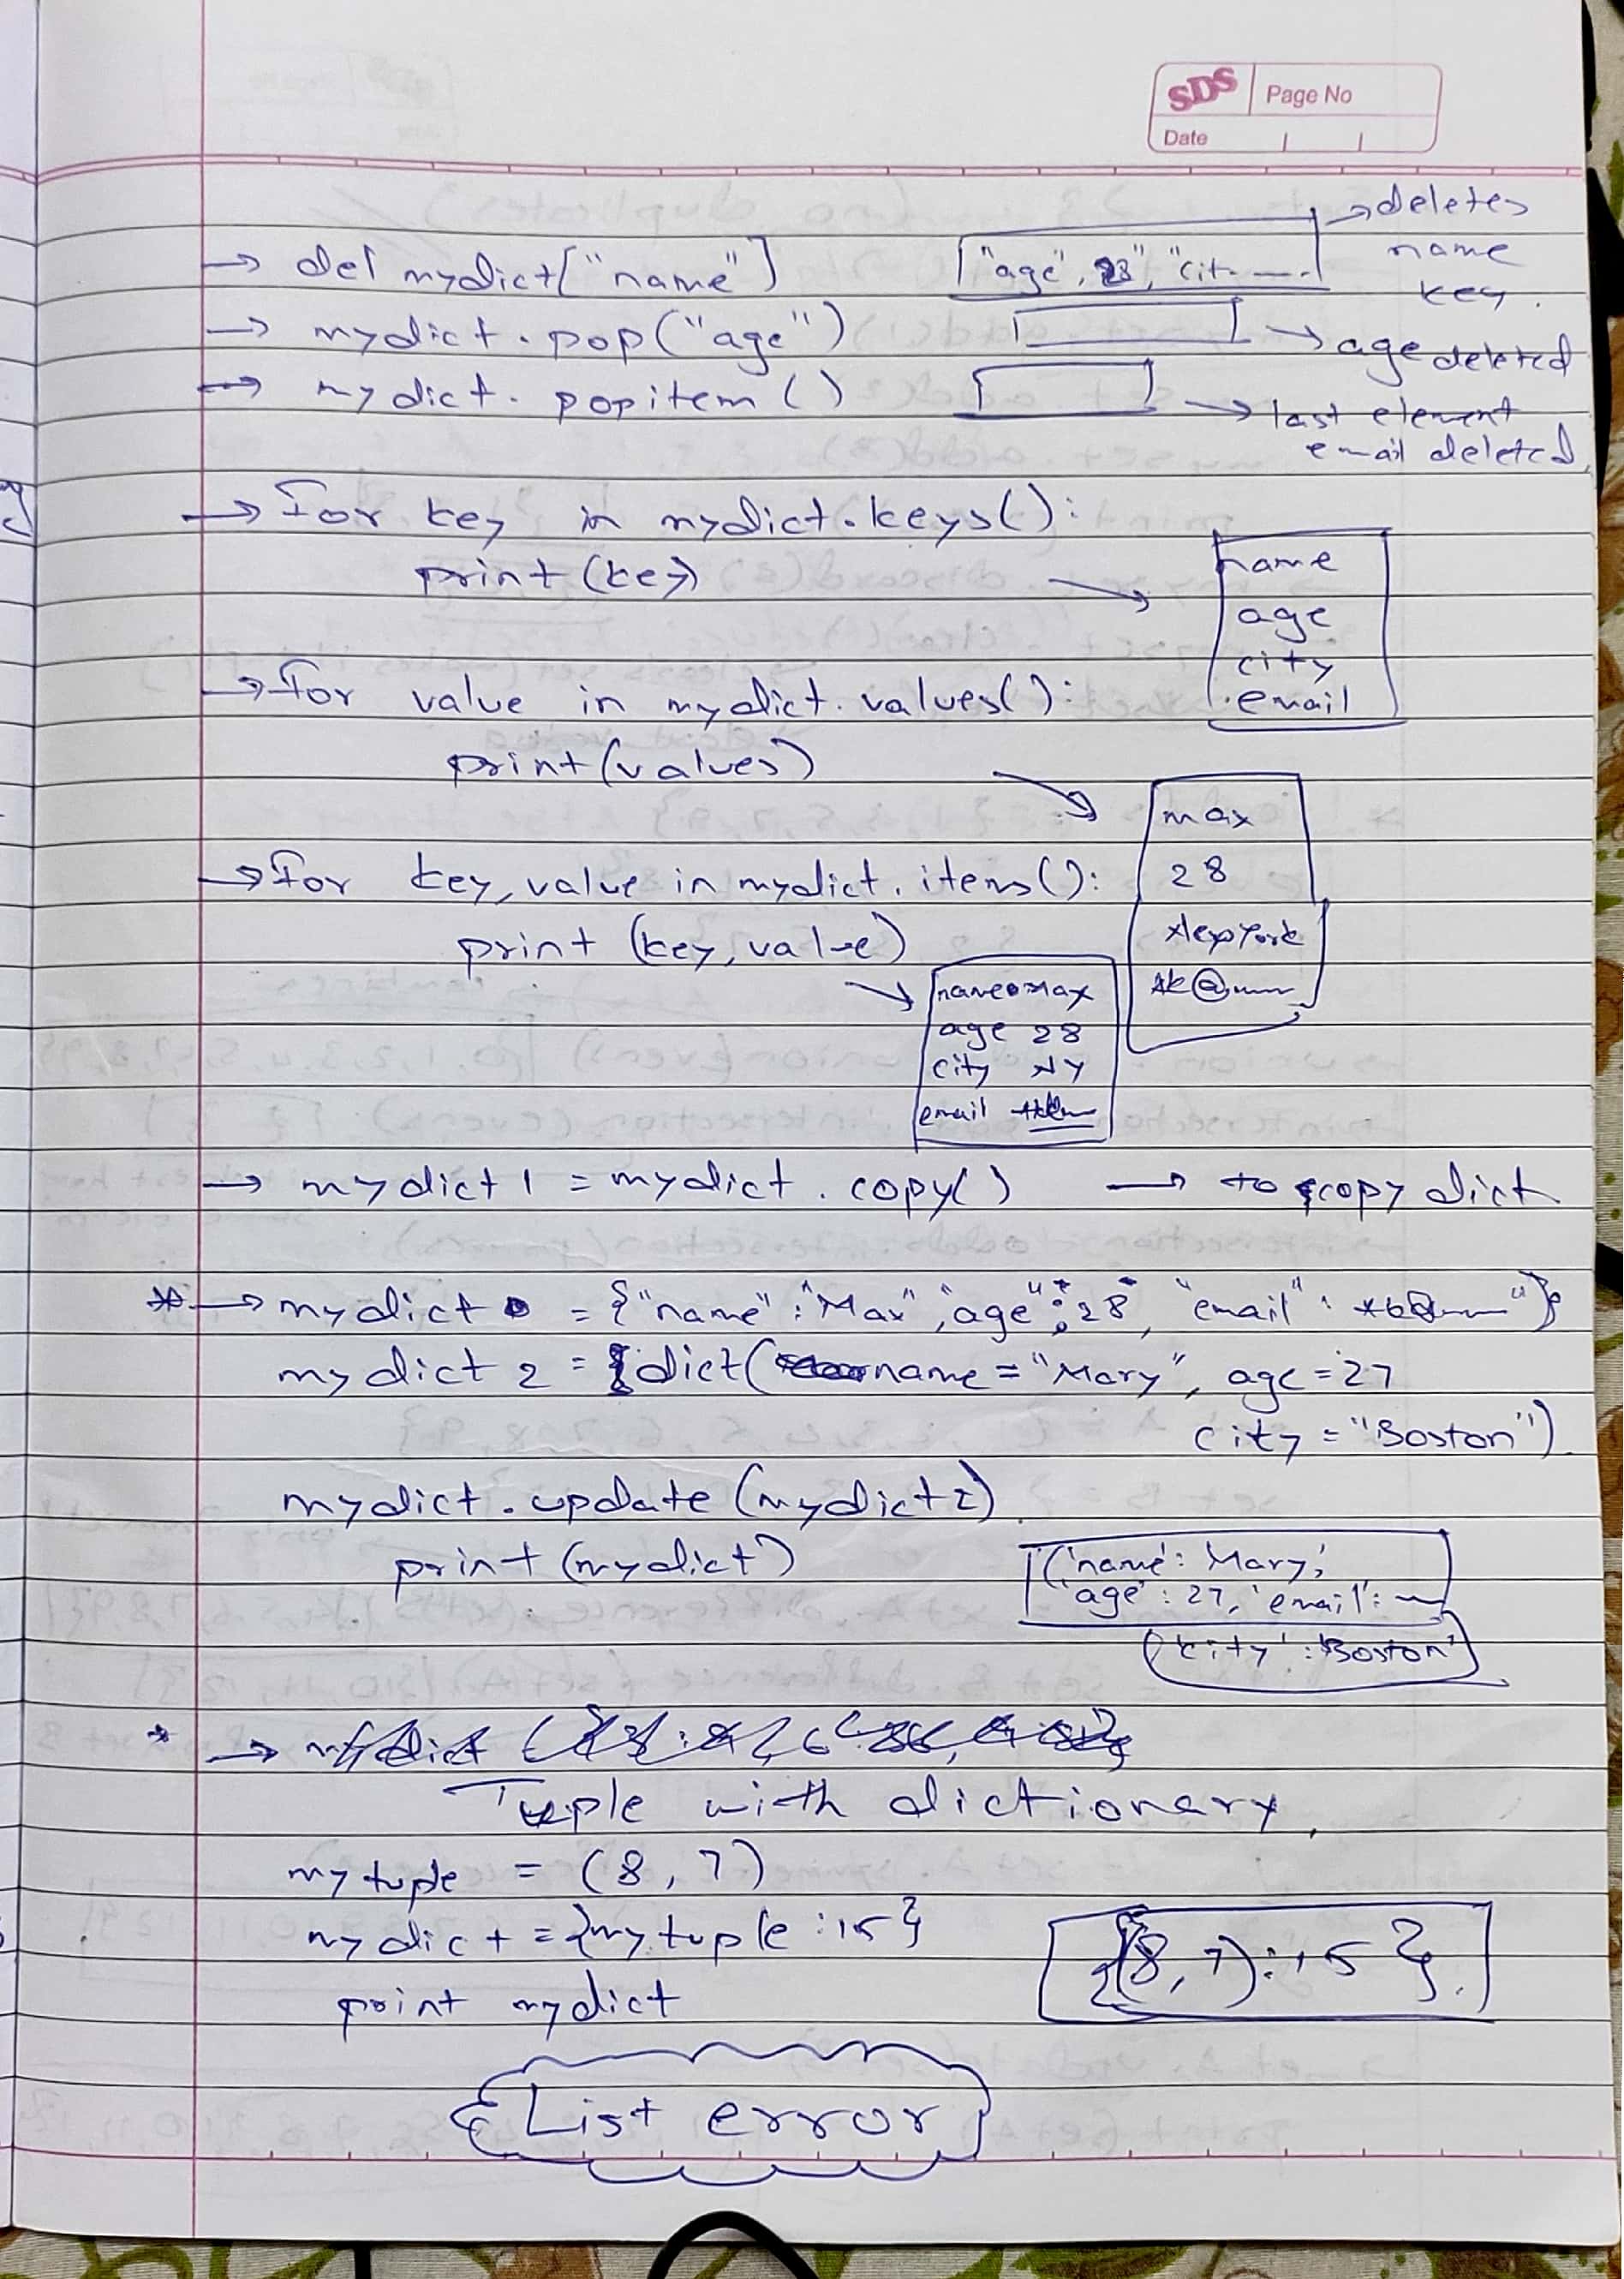 SDS Page No
Date
→ del mydict["name"] "age", 28", "cit →deletes
name
key.
→ mydict.pop("age") → age deleted
→ mydict.popitem() → last element
email deleted
→ For key in mydict.keys():
print(key) → name
age
city
email
→ For value in mydict.values():
print(values) → max
28
NewYork
→ For key, value in mydict.items():
print (key, value) → name max
age 28
city NY
email
→ mydict1 = mydict.copy() → to copy dict
* → mydict = {"name":"Max","age":28, "email":
mydict2 = dict(name="Mary", age=27
city="Boston")
mydict.update(mydict2)
print(mydict) {'name': Mary,'
'age': 27, 'email':
'city':'Boston'
* → mydict
Tuple with dictionary
mytuple = (8, 7)
mydict={mytuple:15}
print mydict {(8,7):15}
List error